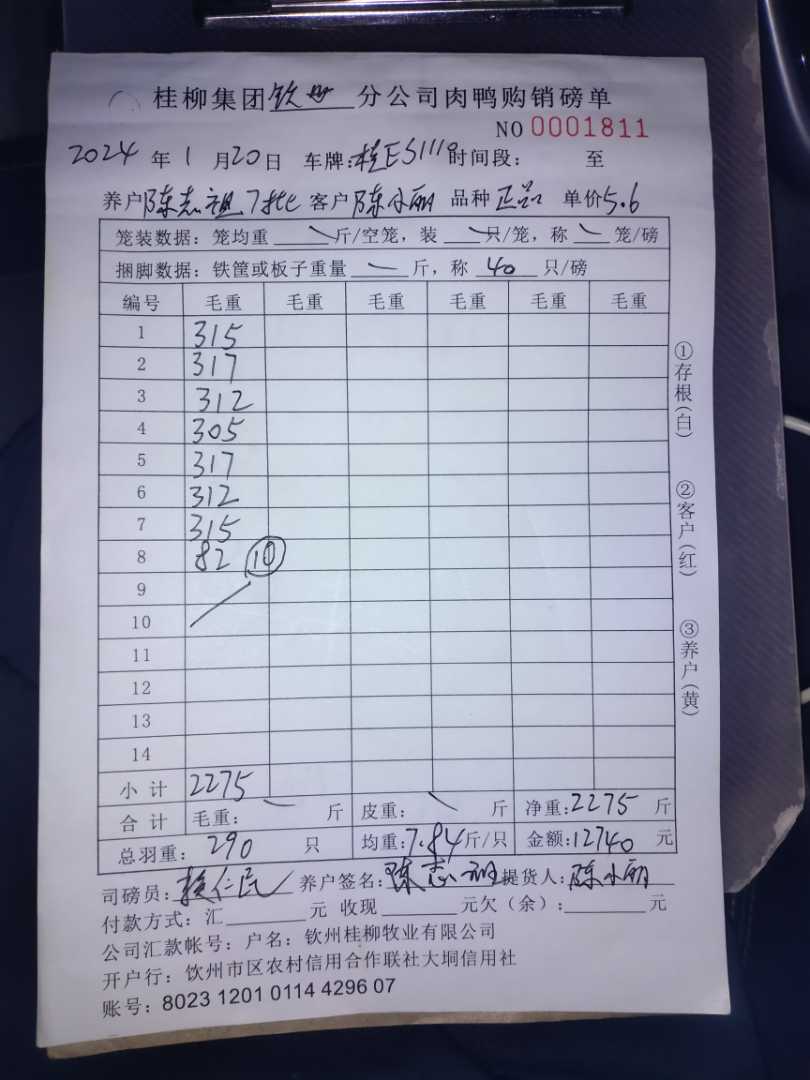 桂柳集团钦州分公司肉鸭购销磅单
NO 0001811
2024年1月20日 车牌:桂ES1119时间段: 至
养户陈志祖7批 客户陈小丽 品种正品 单价5.6
笼装数据：笼均重 斤/空笼，装 只/笼，称 笼/磅
捆脚数据：铁筐或板子重量 斤，称 40 只/磅
编号 毛重 毛重 毛重 毛重 毛重 毛重
1 315
2 317
3 312
4 305
5 317
6 312
7 315
8 82 ⑩
9
10
11
12
13
14
小计 2275
合计 毛重： 斤 皮重： 斤 净重:2275 斤
总羽重：290 只 均重:7.84斤/只 金额:12740 元
司磅员: 养户签名: 陈志祖 提货人:陈小丽
付款方式：汇 元 收现 元欠（余）: 元
公司汇款帐号：户名：钦州桂柳牧业有限公司
开户行：钦州市区农村信用合作联社大垌信用社
账号：8023 1201 0114 4296 07
①存根(白)
②客户(红)
③养户(黄)